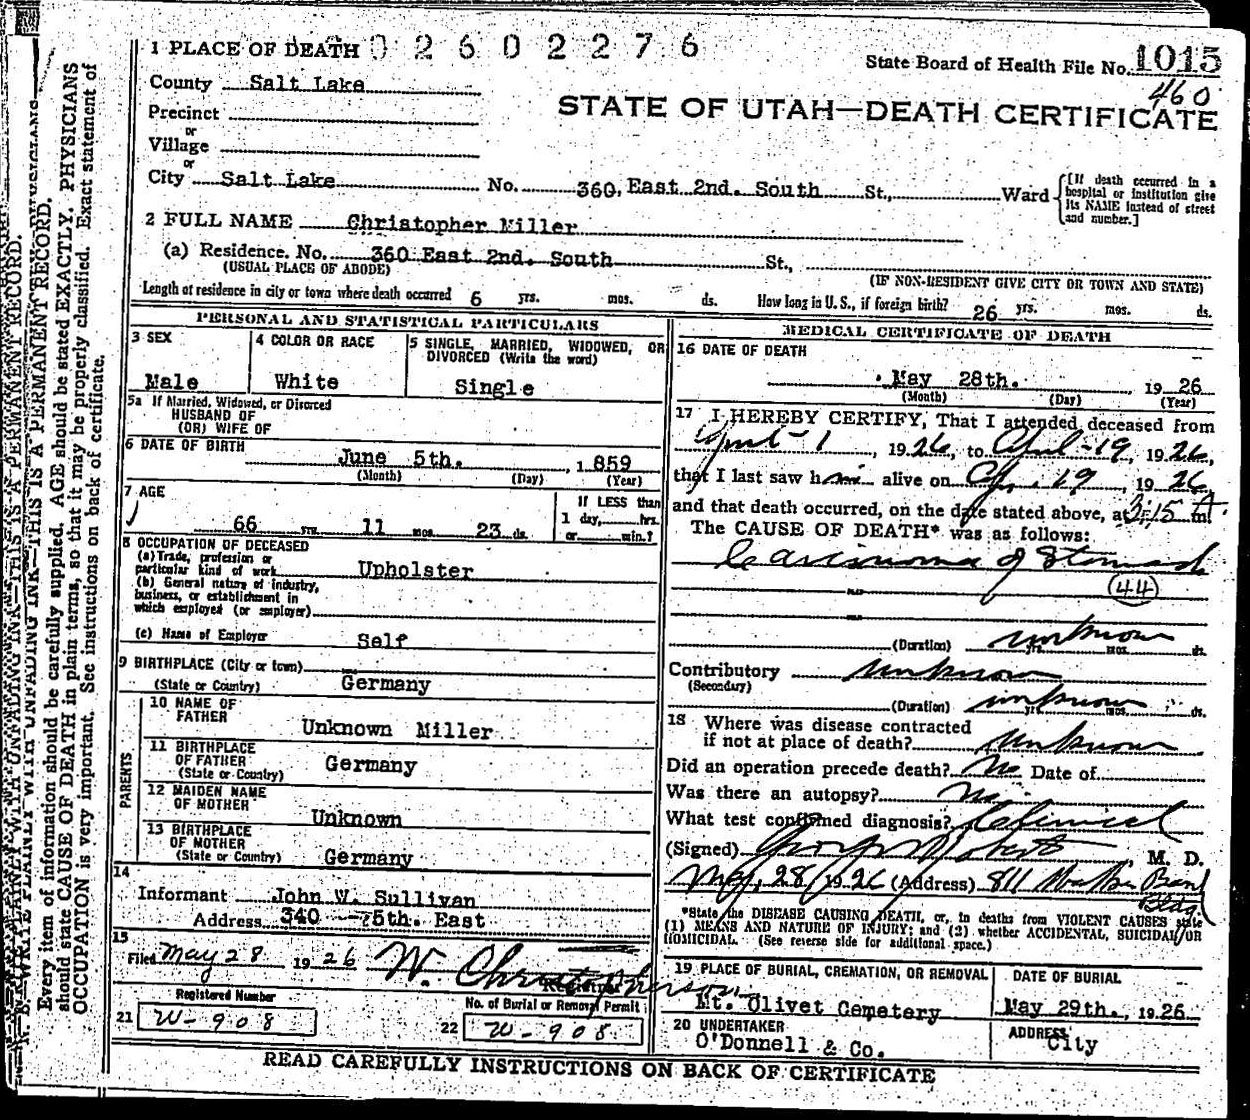 1 PLACE OF DEATH 02602276
State Board of Health File No. 1015
460
County Salt Lake
STATE OF UTAH—DEATH CERTIFICATE
Precinct
or
Village
or
City Salt Lake No. 360, East 2nd. South St., Ward
[If death occurred in a hospital or institution give its NAME instead of street and number.]
2 FULL NAME Christopher Miller
(a) Residence. No. 360 East 2nd. South St.,
(USUAL PLACE OF ABODE) (IF NON-RESIDENT GIVE CITY OR TOWN AND STATE)
Length of residence in city or town where death occurred 6 yrs. mos. ds. How long in U. S., if foreign birth? 26 yrs. mos. ds.
PERSONAL AND STATISTICAL PARTICULARS
3 SEX
Male
4 COLOR OR RACE
White
5 SINGLE, MARRIED, WIDOWED, OR
DIVORCED (Write the word)
Single
5a If Married, Widowed, or Divorced
HUSBAND OF
(OR) WIFE OF
6 DATE OF BIRTH
June 5th. , 1859
(Month) (Day) (Year)
7 AGE
66 yrs. 11 mos. 23 ds.
If LESS than
1 day, hrs.
or min.?
8 OCCUPATION OF DECEASED
(a) Trade, profession or
particular kind of work Upholster
(b) General nature of industry,
business, or establishment in
which employed (or employer)
(c) Name of Employer Self
9 BIRTHPLACE (City or town)
(State or Country) Germany
PARENTS
10 NAME OF
FATHER
Unknown Miller
11 BIRTHPLACE
OF FATHER
(State or Country) Germany
12 MAIDEN NAME
OF MOTHER
Unknown
13 BIRTHPLACE
OF MOTHER
(State or Country) Germany
14
Informant John W. Sullivan
Address 340 — 5th. East
15
Filed May 28 1926 W. Christopherson
Registrar
Registered Number
21 W-908
No. of Burial or Removal Permit
22 W-908
MEDICAL CERTIFICATE OF DEATH
16 DATE OF DEATH
May 28th. , 1926
(Month) (Day) (Year)
17 I HEREBY CERTIFY, That I attended deceased from
April - 1, 1926, to April - 19, 1926,
that I last saw him alive on Ap. 19, 1926,
and that death occurred, on the date stated above, at 3:15 A. m.
The CAUSE OF DEATH* was as follows:
Carcinoma of Stomach
44
(Duration) unknown yrs. mos. ds.
Contributory unknown
(Secondary)
(Duration) unknown yrs. mos. ds.
18 Where was disease contracted
if not at place of death? unknown
Did an operation precede death? No Date of
Was there an autopsy? No
What test confirmed diagnosis? Clinical
(Signed) Roberts, M. D.
May, 28, 1926 (Address) 811 Walker Bank
Bldg
*State the DISEASE CAUSING DEATH, or, in deaths from VIOLENT CAUSES state
(1) MEANS AND NATURE OF INJURY; and (2) whether ACCIDENTAL, SUICIDAL, OR
HOMICIDAL. (See reverse side for additional space.)
19 PLACE OF BURIAL, CREMATION, OR REMOVAL
Mt. Olivet Cemetery
DATE OF BURIAL
May 29th., 1926
20 UNDERTAKER
O'Donnell & Co.
ADDRESS
City
READ CAREFULLY INSTRUCTIONS ON BACK OF CERTIFICATE
N. B. WRITE PLAINLY WITH UNFADING INK—THIS IS A PERMANENT RECORD.
Every item of information should be carefully supplied. AGE should be stated EXACTLY. PHYSICIANS
should state CAUSE OF DEATH in plain terms, so that it may be properly classified. Exact statement of
OCCUPATION is very important. See instructions on back of certificate.